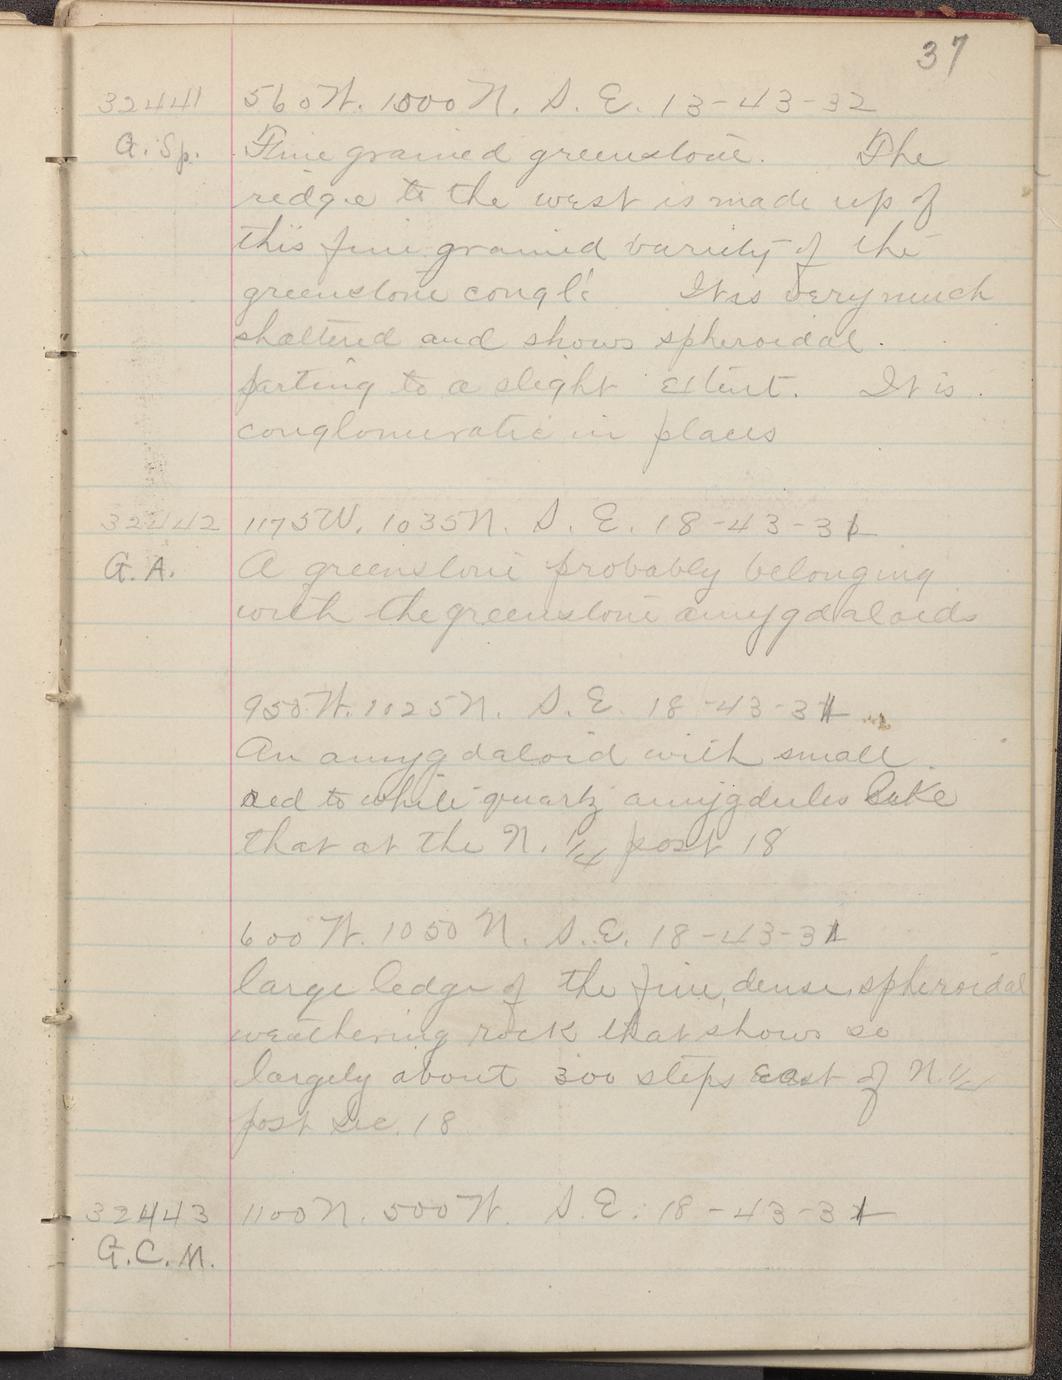 37
32441 560W. 1000N. S. E. 13-43-32
G. Sp. Fine grained greenstone. The
ridge to the west is made up of
this fine grained variety of the
greenstone congl. It is very much
shattered and shows spheroidal
parting to a slight extent. It is
conglomeratic in places
32442 1175W. 1035N. S. E. 18-43-31
G. A. A greenstone probably belonging
with the greenstone amygdaloids
950W. 1025N. S. E. 18-43-31
An amygdaloid with small
red to white quartz amygdules like
that at the N. 1/4 post 18
600W. 1050N. S. E. 18-43-31
large ledge of the fine, dense, spheroidal
weathering rock that shows so
largely about 300 steps east of N. 1/4
post Sec. 18
32443 1100N. 500W. S. E. 18-43-31
G. C. M.